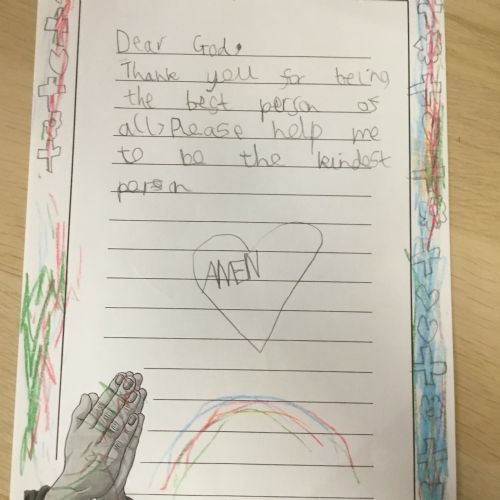 Dear God,
Thank you for being
the best person of
all> Please help me
to be the kindest
person
AMEN